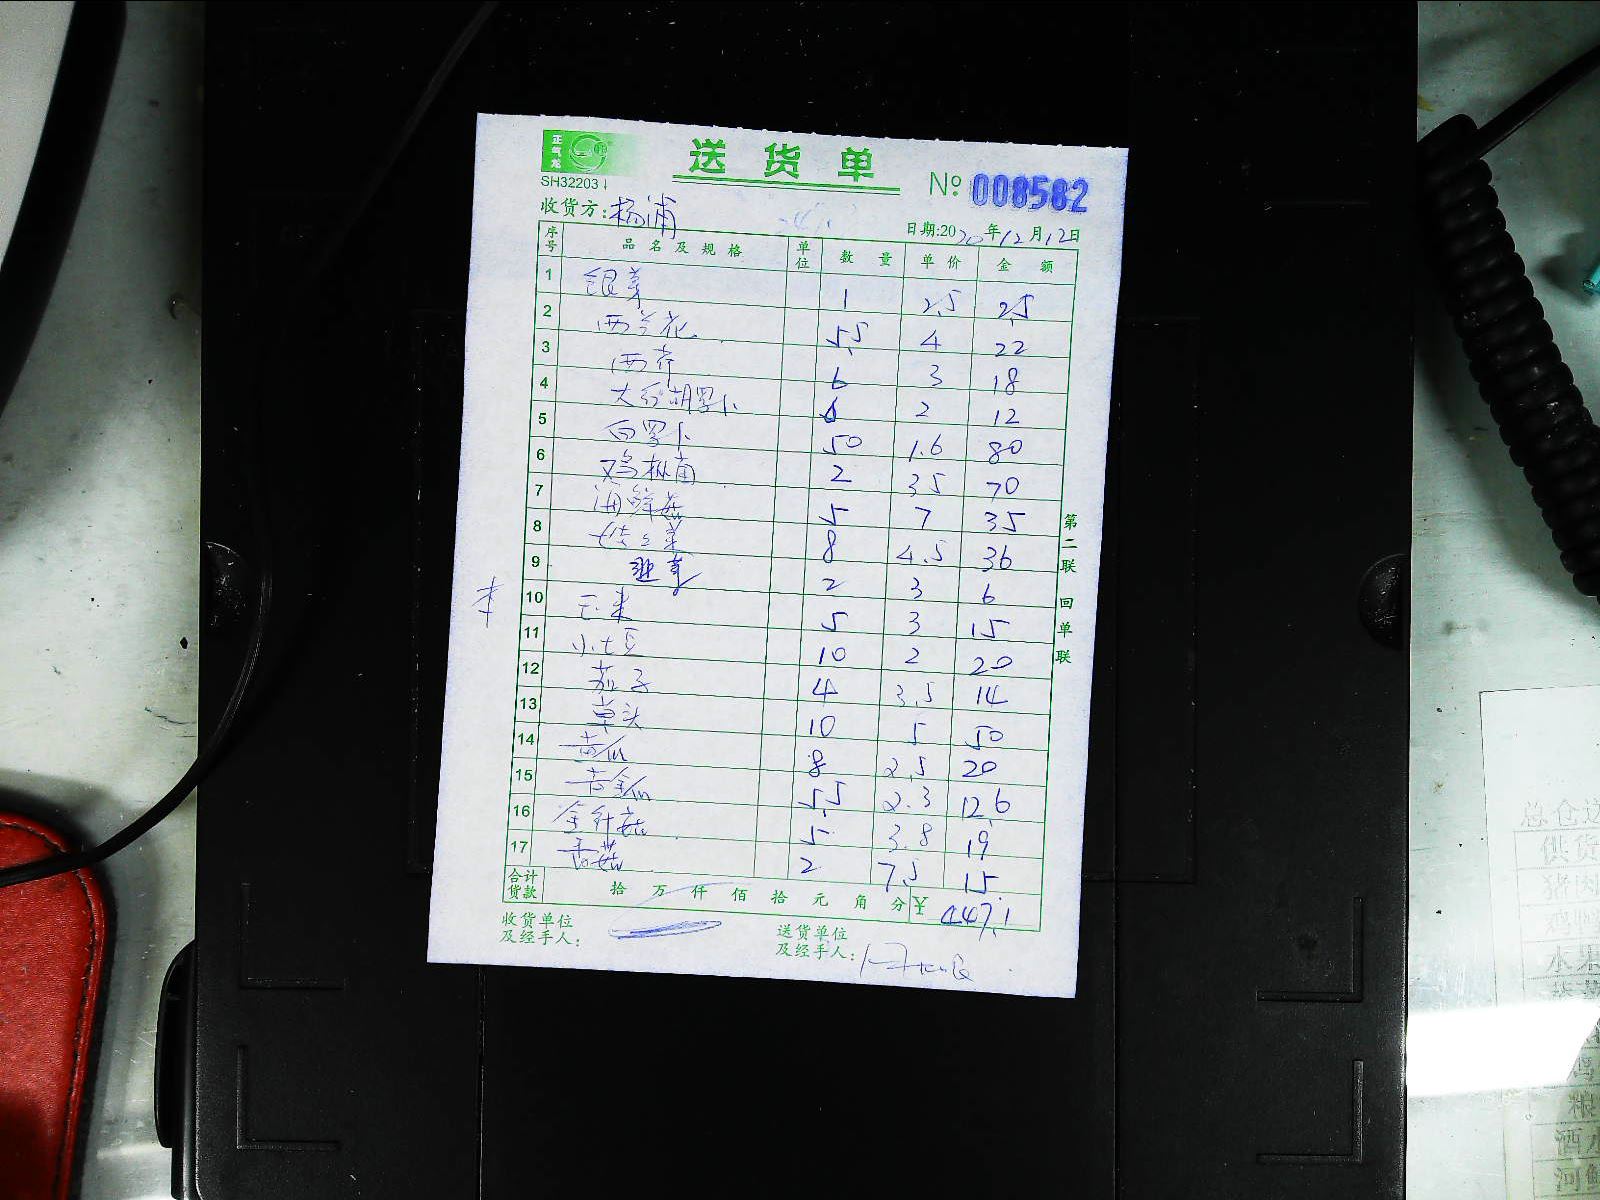 正气龙
送 货 单
SH32203
№ 008582
收货方: 杨浦
日期:2020年12月12日
序号 品名及规格 单位 数量 单价 金额
1 银芽 1 2.5 2.5
2 西兰花 5.5 4 22
3 西芹 6 3 18
4 大红胡罗卜 6 2 12
5 白罗卜 50 1.6 80
6 鸡枞菌 2 35 70
7 海鲜菇 5 7 35
8 8 4.5 36
9 2 3 6
10 玉米 5 3 15
11 小土豆 10 2 20
12 茄子 4 3.5 14
13 草头 10 5 50
14 黄瓜 8 2.5 20
15 5.5 2.3 12.6
16 金针菇 5 3.8 19
17 香菇 2 7.5 15
合计货款 拾 万 仟 佰 拾 元 角 分 ¥ 447.1
收货单位及经手人:
送货单位及经手人:
第二联 回单联
供货
猪肉
水果
粮
酒水
河鲜